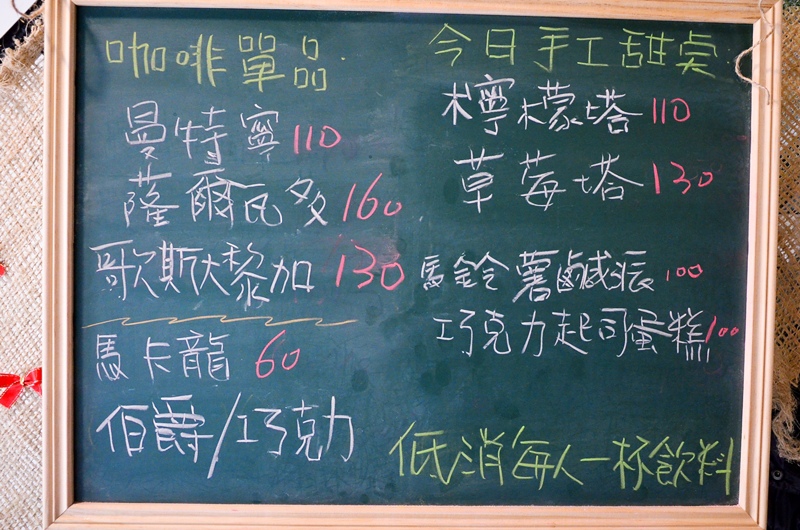 咖啡單品
曼特寧 110
薩爾瓦多 160
歌斯大黎加 130
馬卡龍 60
伯爵/巧克力
今日手工甜点
檸檬塔 110
草莓塔 130
馬鈴薯鹹派 100
巧克力起司蛋糕 100
低消每人一杯飲料